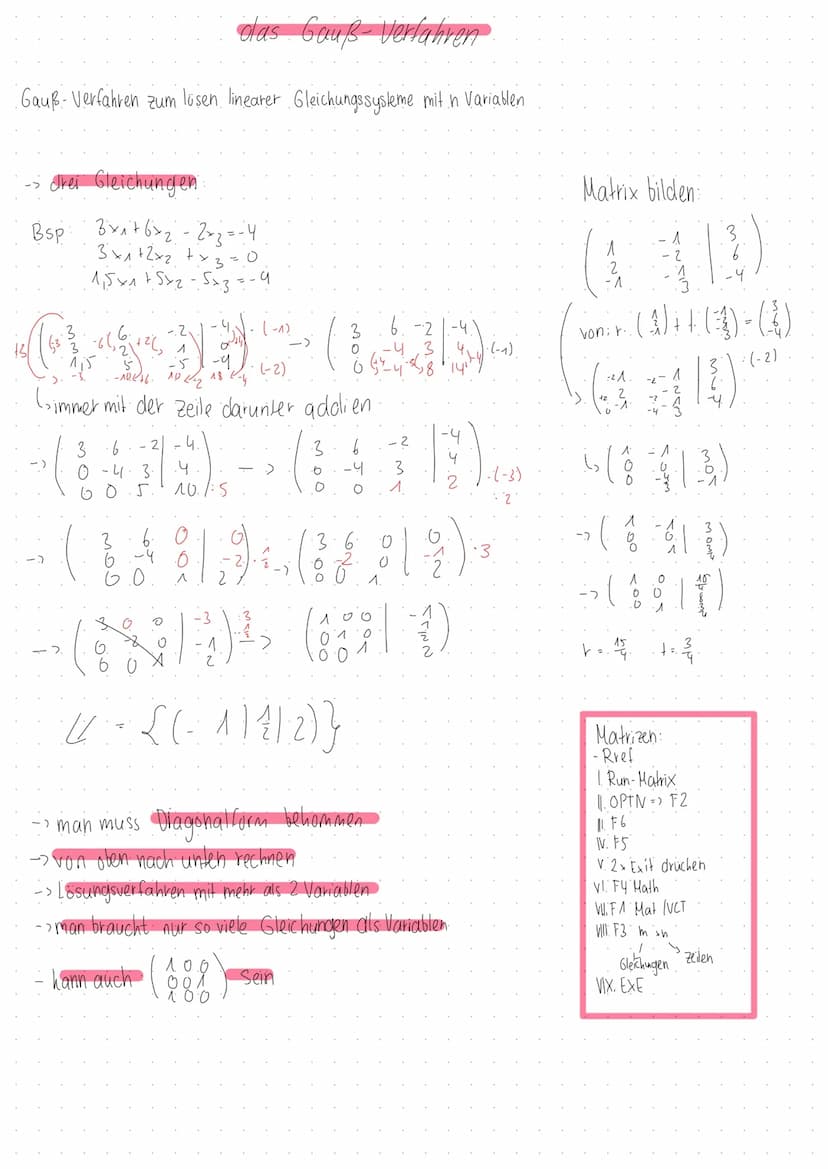 das Gauß-Verfahren
Gauß-Verfahren zum lösen linearer Gleichungssysteme mit n Variablen
-> drei Gleichungen:
Bsp: 3x₁ + 6x₂ - 2x₃ = -4
3x₁ + 2x₂ + x₃ = 0
1,5x₁ + 5x₂ - 5x₃ = -9
( 3 6 -2 | -4 ) ·(-1)
( 3 2 1 | 0 )
( 1,5 5 -5 | -9 ) ·(-2)
-> ( 3 6 -2 | -4 )
( 0 -4 3 | 4 ) ·(-1)
( 0 -4 8 | 14 )
↳ immer mit der Zeile darunter addien
-> ( 3 6 -2 | -4 )
( 0 -4 3 | 4 )
( 0 0 5 | 10 ) :5
-> ( 3 6 -2 | -4 )
( 0 -4 3 | 4 )
( 0 0 1 | 2 ) ·(-3)
2
-> ( 3 6 0 | 0 )
( 0 -4 0 | -2 ) ·1/2
( 0 0 1 | 2 )
-> ( 3 6 0 | 0 )
( 0 -2 0 | -1 ) ·3
( 0 0 1 | 2 )
-> ( 3 0 0 | -3 )
( 0 -2 0 | -1 )
( 0 0 1 | 2 )
-> ( 1 0 0 | -1 )
( 0 1 0 | 1/2 )
( 0 0 1 | 2 )
𝕃 = {(-1 | 1/2 | 2)}
-> man muss Diagonalform bekommen
-> von oben nach unten rechnen
-> Lösungsverfahren mit mehr als 2 Variablen
-> man braucht nur so viele Gleichungen als Variablen
- kann auch ( 1 0 0 ) sein
( 0 0 1 )
( 1 0 0 )
Matrix bilden:
( 1 -1 | 3 )
( 2 -2 | 6 )
( -1 -1/3 | -4 )
von: r·
+ t·
=
·(-2)
↳ ( 1 -1 | 3 )
( 0 0 | 0 )
( 0 -4/3 | -1 )
-> ( 1 -1 | 3 )
( 0 0 | 0 )
( 0 1 | 3/4 )
-> ( 1 0 | 15/4 )
( 0 0 | 0 )
( 0 1 | 3/4 )
r = 15/4 t = 3/4
Matrizen:
- Rref
I. Run-Matrix
II. OPTN => F2
III. F6
IV. F5
V. 2x Exit drücken
VI. F4 Math
VII. F1 Mat/VCT
VIII. F3 m x n
Gleichungen Zeilen
VIX. EXE